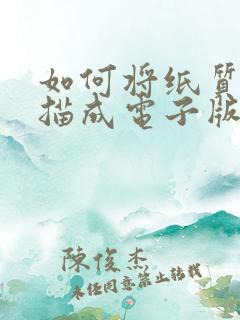 如何将纸质
描成电子版
陳俊杰
未经同意禁止转载